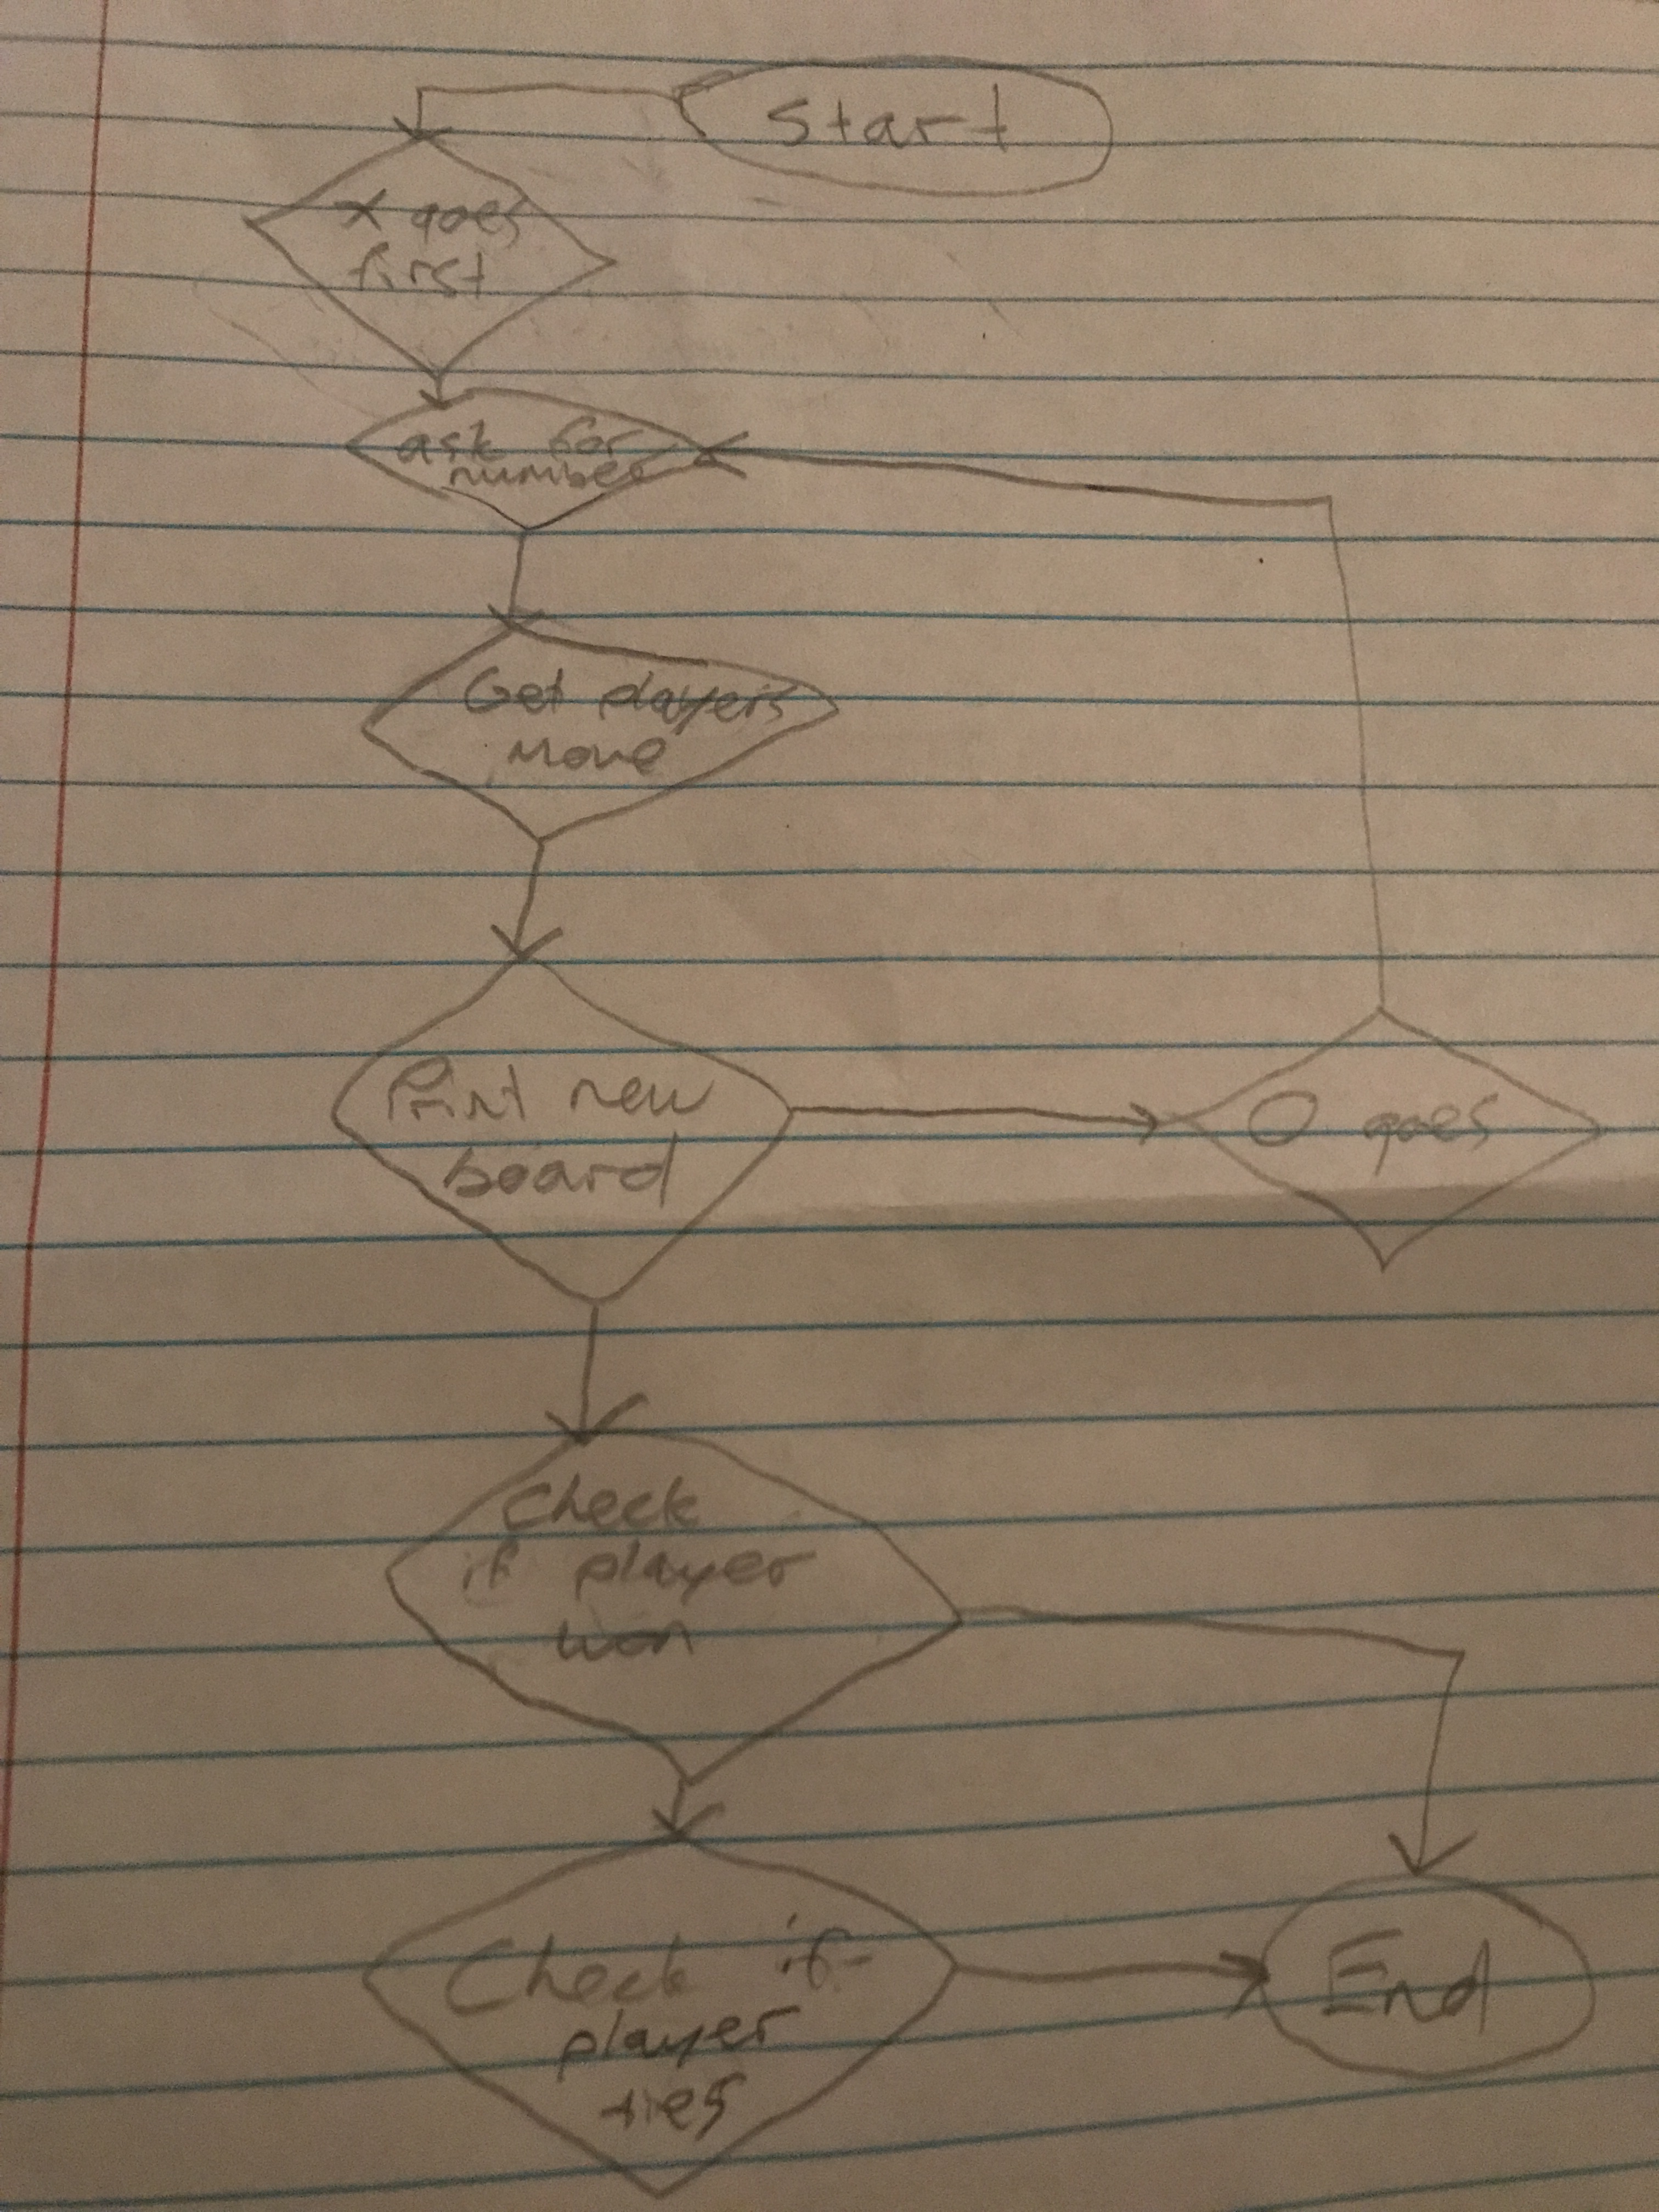 Start
X goes
first
ask for
number
Get player's
move
Print new
board
O goes
Check
if player
won
Check if
player
ties
End